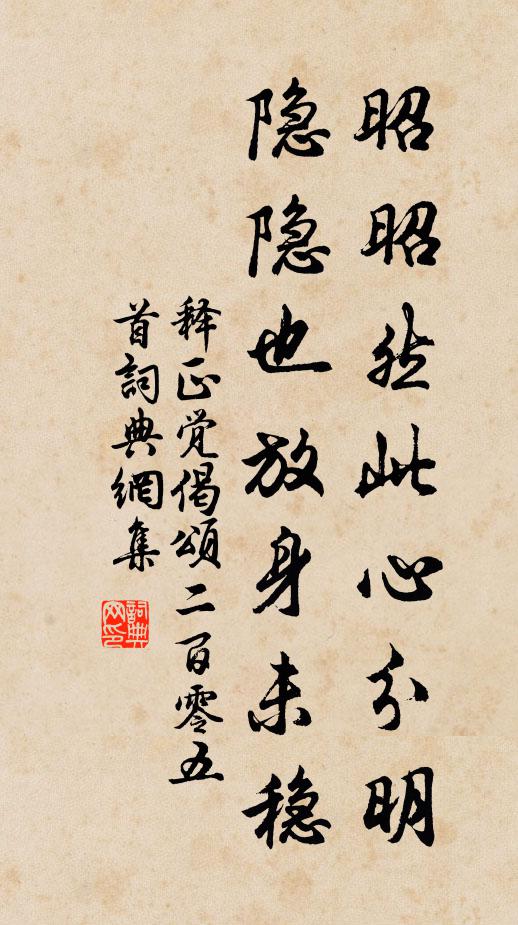 昭昭然此心分明
隐隐也放身未稳
释正觉偈颂二百零五
首詞典網集
詞典网印